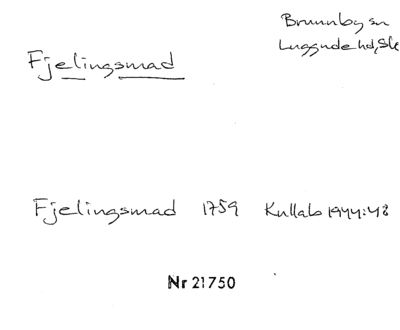 Brunnby sn
Luggude hd, Sk
Fjelingsmad
Fjelingsmad 1759 Kullab 1944:48
Nr 21750